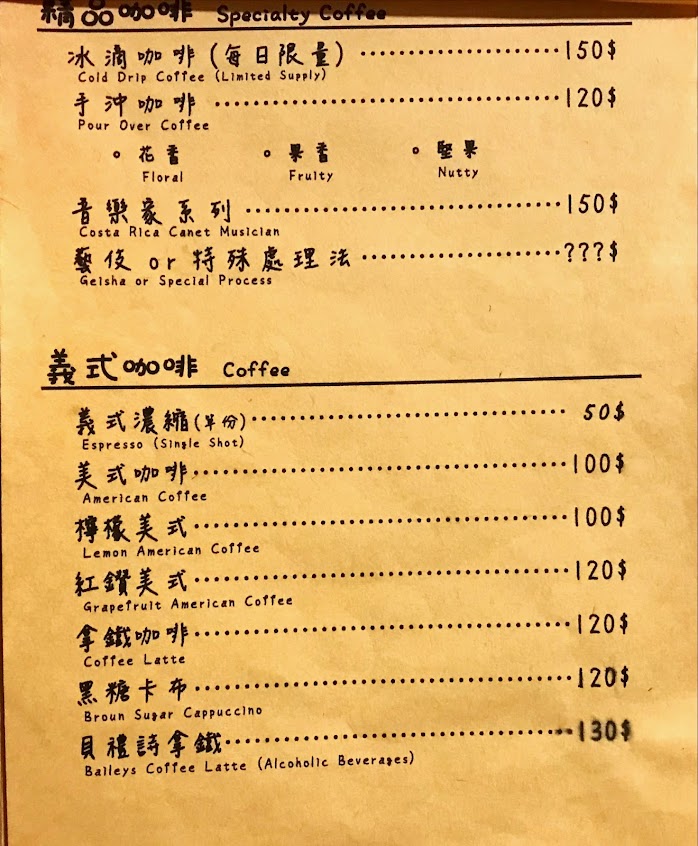 精品咖啡 Specialty Coffee
冰滴咖啡(每日限量) 150$
Cold Drip Coffee (Limited Supply)
手沖咖啡 120$
Pour Over Coffee
花香 果香 堅果
Floral Fruity Nutty
音樂家系列 150$
Costa Rica Canet Musician
藝伎 or 特殊處理法 ???$
Geisha or Special Process
義式咖啡 Coffee
義式濃縮(單份) 50$
Espresso (Single Shot)
美式咖啡 100$
American Coffee
檸檬美式 100$
Lemon American Coffee
紅鑽美式 120$
Grapefruit American Coffee
拿鐵咖啡 120$
Coffee Latte
黑糖卡布 120$
Broun Sugar Cappuccino
貝禮詩拿鐵 130$
Baileys Coffee Latte (Alcoholic Beverages)